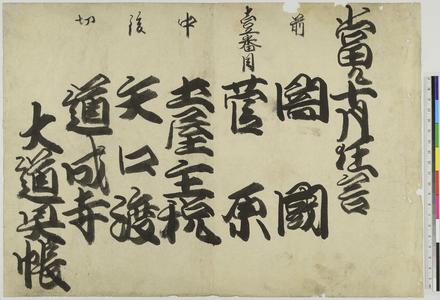 十月狂言
前
國
壹番目
菅原
中
土屋主税
後
矢口渡
切
道成寺
大道具帳